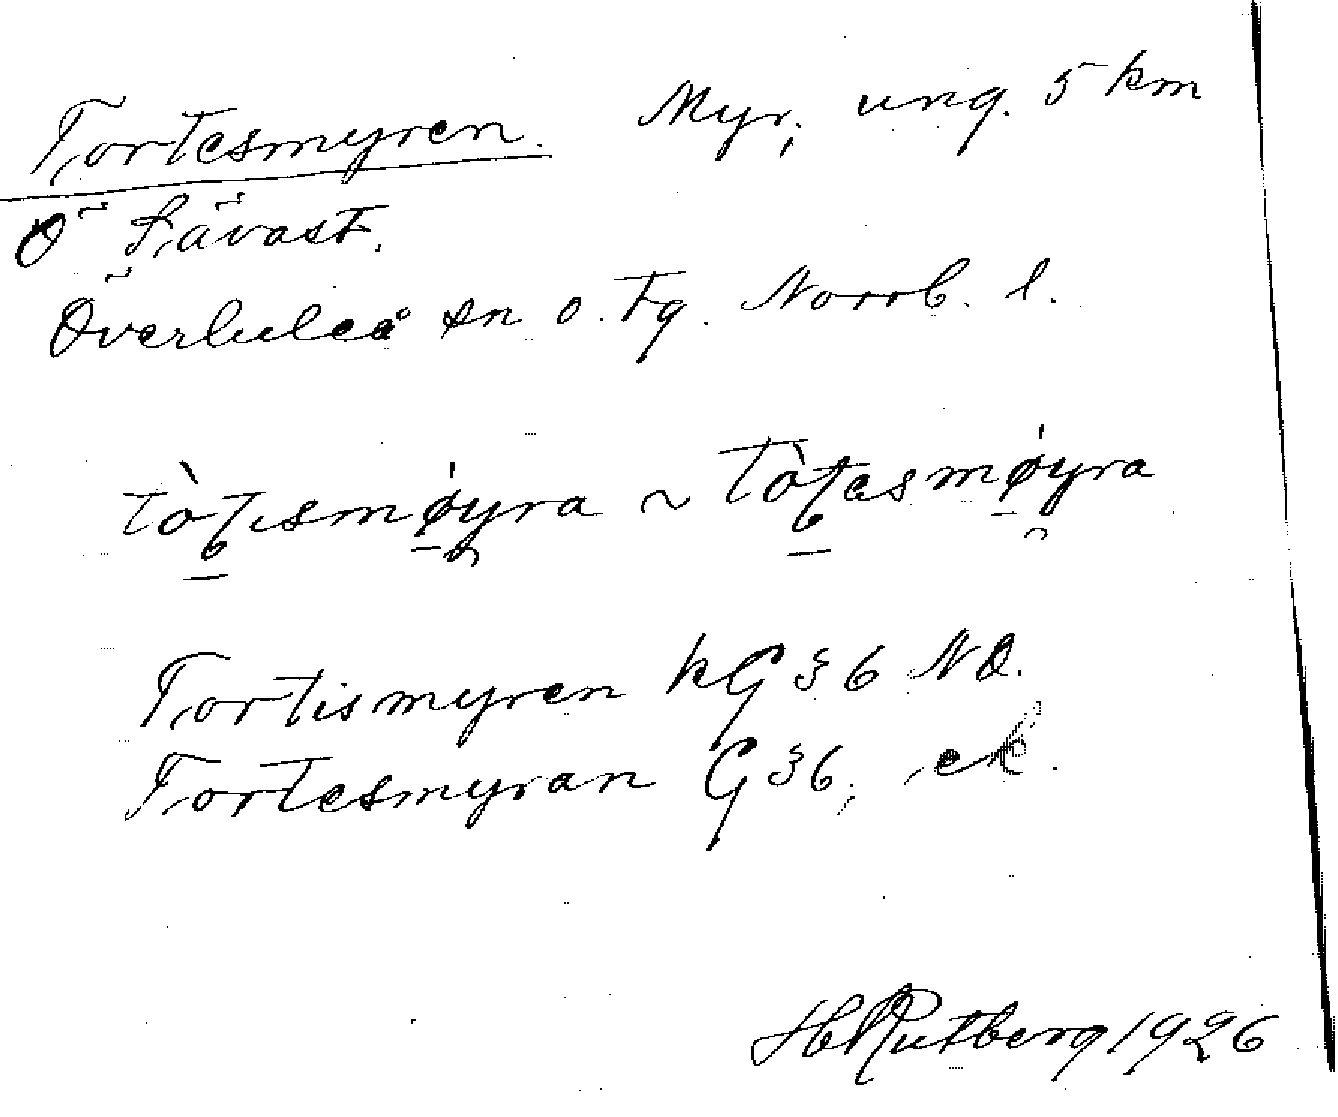 Tortesmyren. Myr, ung. 5 km
Ö Sävast.
Överluleå sn o. tg. Norrb. l.
tò̱ṭısmǿ̱yra ~ tòṭesmǿ̱yra
Tortismyren kG 36 NO.
Tortesmyran G 36, ek.
H Rutberg 1926